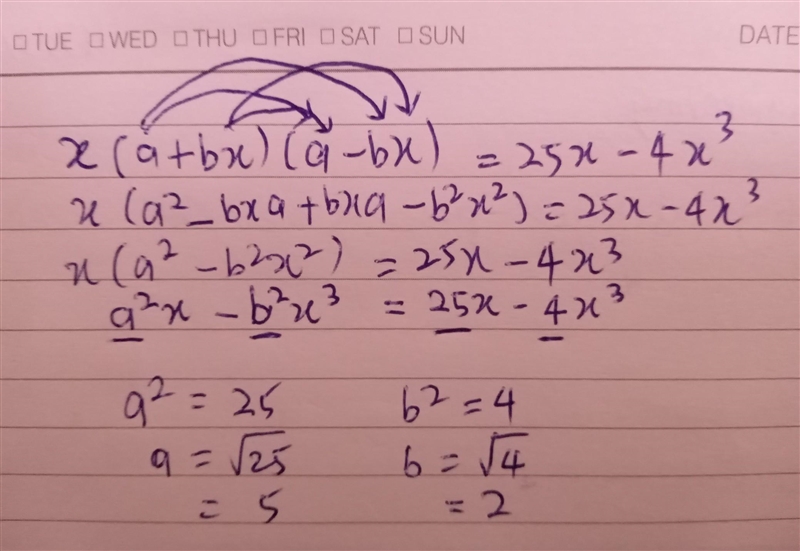 □ TUE □ WED □ THU □ FRI □ SAT □ SUN DATE
x (a + bx) (a - bx) = 25x - 4x³
x (a² - bxa + bxa - b²x²) = 25x - 4x³
x (a² - b²x²) = 25x - 4x³
a²x - b²x³ = 25x - 4x³
a² = 25 b² = 4
a = √25 b = √4
= 5 = 2